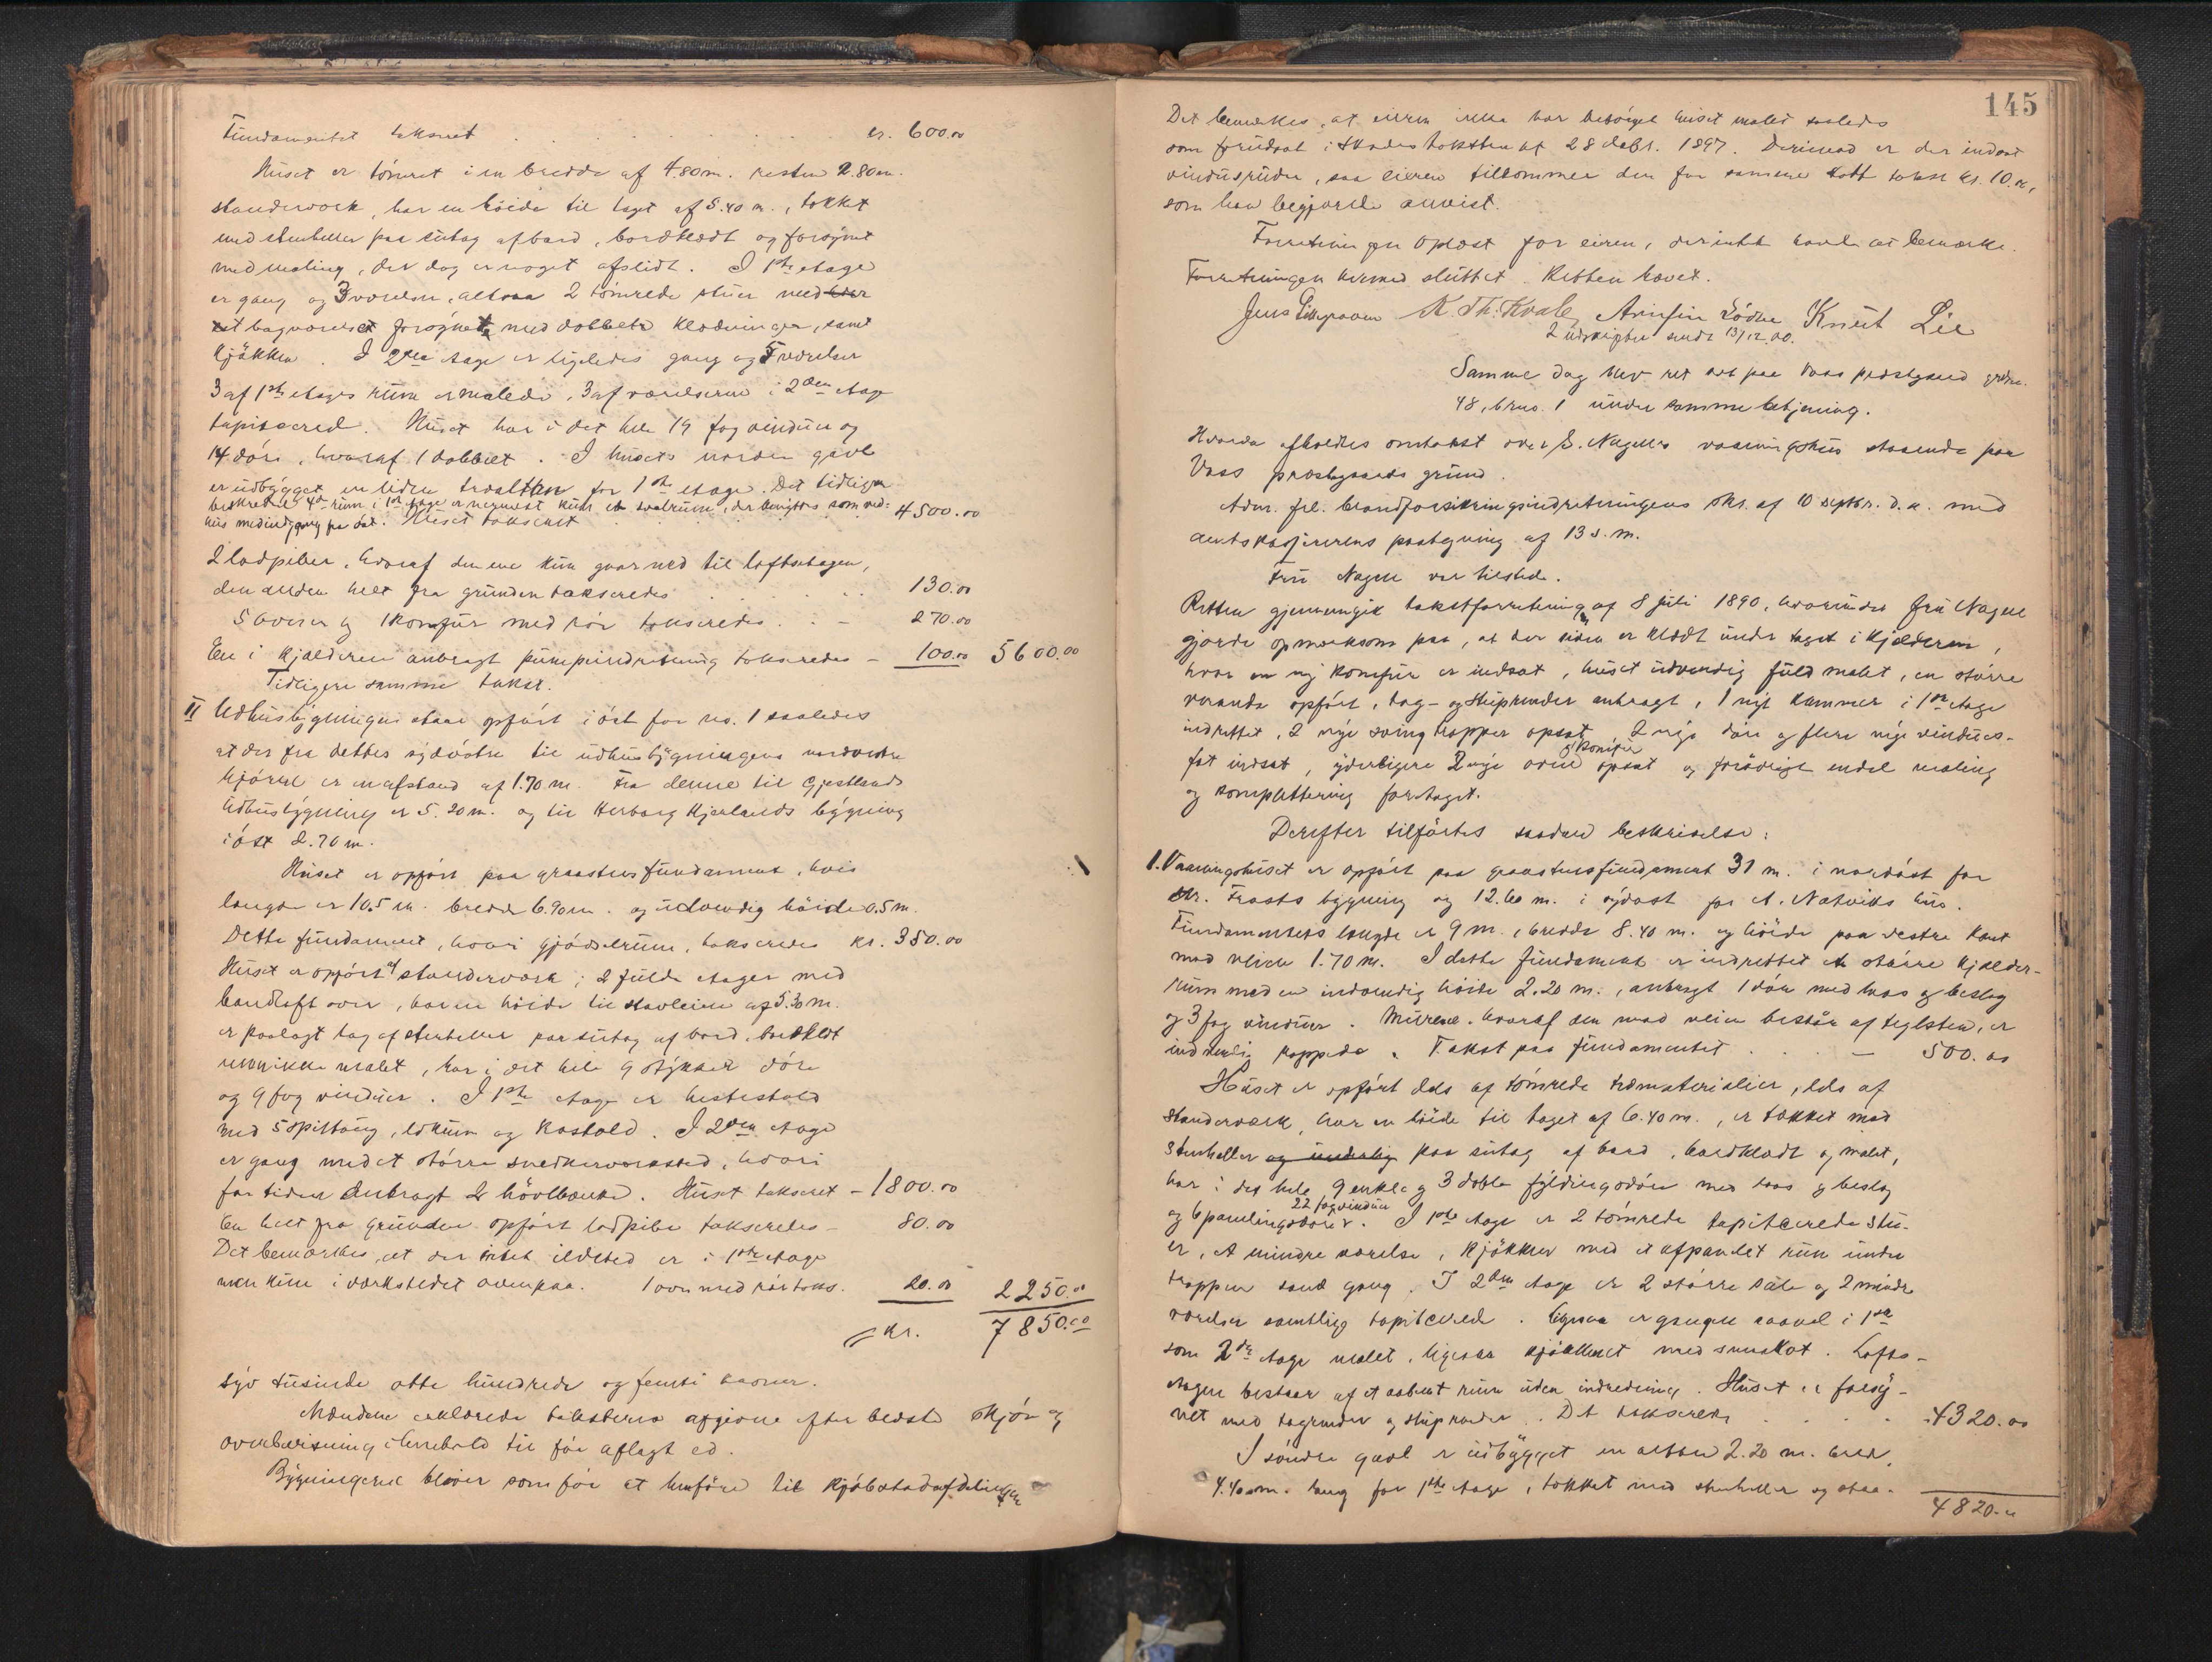 Fundamentet takseret . . . . . . . kr. 600.00
Huset er tömret i en bredde af 4.80 m. resten 2.80 m.
standerværk, har en höide til taget af 5.40 m., tækket
med stenheller paa sutag af bord, bordklædt og forsynet
med maling, der dog er noget afslidt. I 1ste etage
er gang og 3 værelser, altsaa 2 tömrede stuer med
et bagværelse forsynet med dobbelte klædninger, samt
kjökken. I 2den etage er ligeledes gang og 5 værelser
3 af 1ste etages rum er malede, 3 af værelserne i 2den etage
tapisered. Huset har i det hele 19 fag vinduer og
14 döre, hvoraf 1 dobbelt. I husets nordre gavl
er udbygget en liden for 1ste etage. Det tidligere
beskrevne 4de rum i 1ste etage er nærmest kun et svalrum, der benyttes som ved-
hus med indgang fra öst. Huset takseret 4500.00
2 ladpiber, hvoraf den ene kun gaar ned til loftsetagen,
den anden helt fra grunden takseredes . . . . 130.00
5 ovner og 1 komfur med rör takseredes . . - 270.00
En i kjælderen anbragt pumpeindretning takseredes - 100.00 5600.00
Tidligere samme takst.
II Udhusbygningen staar opfört i öst for no. 1 saaledes
at der fra dettes sydöstre til udhusbygningens nordvestre
hjörne er en afstand af 1.70 m. Fra denne til Gjestlands
udhusbygning er 5.20 m. og til Herborg Hjerlands bygning
i öst 2.70 m.
Huset er opfört paa graastensfundament, hvis
længde er 10.5 m. bredde 6.90 m. og udvendig höide 0.5 m.
Dette fundament, hvori gjödselrum, takseredes kr. 350.00
Huset er opfört af standerværk i 2 fulde etager med
bandloft over, har en höide til stavleien af 5.30 m.
er paalagt tag af stenheller paa sutag af bord, bordklædt
men ikke malet, har i det hele 9 stykker döre
og 9 fag vinduer. I 1ste etage er hestestald
med 5 spiltoug, lokum og kostald. I 2den etage
er gang med et större snedkerværksted, hvori
for tiden anbragt 2 hövlbænke. Huset takseret - 1800.00
En helt fra grunden opfört ladpibe takseredes - 80.00
Det bemærkes, at der intet ildsted er i 1ste etage
men kun i værkstedet ovenpaa. 1 ovn med rör taks. 20.00 2250.00
kr. 7850.00
syv tusinde otte hundrede og femti kroner.
Mændene erklærede taksterne afgivne efter bedste skjön og
overbevisning i henhold til för aflagt ed.
Bygningerne bliver som för at henföre til kjöbstadafdelingen
145
Det bemærkes, at eieren ikke har besörget huset malet saaledes
som forudsat i skadestaksten af 28 decbr. 1897. Derimod er der indsat
vindusruder, saa eieren tilkommer den for samme satte takst kr. 10.00,
som han begjærede anvist.
Forretningen oplæst for eieren, der intet havde at bemærke.
Forretningen hermed sluttet. Retten hævet.
Jens K. Th. Kvale, Knut Lie
2 udskrifter sendt 13/12.00.
Samme dag blev ret sat paa Voss prestegaard grdno.
48, brno. 1 under samme betjening.
Hvorda afholdtes omtakst over E. Nagells vaaningshus staaende paa
Voss præstegaards grund.
Adm. frl. brandforsikringsindretningens skr. af 10 septbr. d. a. med
amtskasjererens paategning af 13 s. m.
Fru Nagell var tilstede.
Retten gjennemgik takstforretning af 8 juli 1890, hvorunder fru Nagell
gjorde opmerksom paa, at der siden er klædt under taget i kjælderen,
hvor en ny komfur er indsat, huset udvendig fuld malet, en större
veranda opfört, tag- og stuprender anbragt, 1 nyt kammer i 1ste etage
indrettet, 2 nye svingtrapper opsat, 2 nye döre og flere nye vindues-
fag indsat, yderligere 2 nye ovne og komfur opsat og forövrigt endel maling
og komplettering foretaget.
Derefter tilförtes saadan beskrivelse:
1. Vaaningshuset er opfört paa graastensfundament 31 m. i nordöst for
Str. Frosts bygning og 12.60 m. i sydöst for A. Natviks hus.
Fundamentets længde er 9 m., bredde 8.40 m. og höide paa vestre kant
mod veien 1.70 m. I dette fundament er indrettet et större kjælder-
rum med en indvendig höide 2.20 m., anbragt 1 dör med laas og beslag
og 3 fag vinduer. Murene, hvoraf den mod veien bestaar af teglsten, er
indvendig pappede. Takst paa fundamentet . . . - 500.00
Huset er opfört dels af tömrede træmaterialier, dels af
standerværk, har en höide til taget af 6.40 m., er tækket med
stenheller og underlag paa sutag af bord, bordklædt og malet,
har i det hele 9 enkle og 3 doble fyldingsdöre med laas og beslag
og 6 panelingsdöre. 22 fag vinduer I 1ste etage er 2 tömrede tapiserede stu-
er, et mindre værelse, kjökken med et afpanelet rum under
trappen samt gang. I 2den etage er 2 större sale og 2 mindre
værelser samtlige tapiserede. Ligesaa er gangen saavel i 1ste
som 2den etage malet, ligesaa kjökkenet med . Lofts-
etagen bestaar af et aabent rum uden indredning. Huset er forsy-
net med tagrender og stuprender. Det takseredes . . . . 4320.00
I söndre gavl er udbygget en altan 2.20 m. bred,
4.40 m. lang for 1ste etage, tækket med stenheller og staa-
4820.00